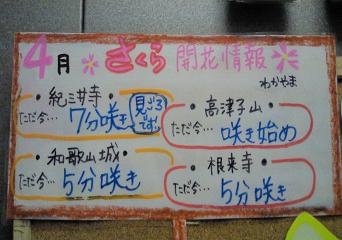 4月 さくら 開花情報
わかやま
・紀三井寺・
ただ今… 7分咲き
見ごろです!!
・高津子山・
ただ今… 咲き始め
・和歌山城・
ただ今… 5分咲き
・根来寺・
ただ今… 5分咲き